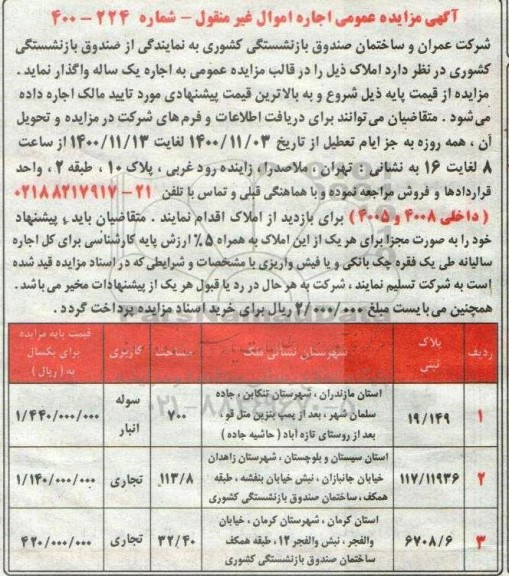 آگهی مزایده عمومی اجاره اموال غیر منقول - شماره ۲۲۴ - ۴۰۰
شرکت عمران و ساختمان صندوق بازنشستگی کشوری به نمایندگی از صندوق بازنشستگی
کشوری در نظر دارد املاک ذیل را در قالب مزایده عمومی به اجاره یک ساله واگذار نماید .
مزایده از قیمت پایه ذیل شروع و به بالاترین قیمت پیشنهادی مورد تایید مالک اجاره داده
می شود . متقاضیان می توانند برای دریافت اطلاعات و فرم های شرکت در مزایده و تحویل
آن ، همه روزه به جز ایام تعطیل از تاریخ ۱۴۰۰/۱۱/۰۳ لغایت ۱۴۰۰/۱۱/۱۳ از ساعت
۸ لغایت ۱۶ به نشانی : تهران ، ملاصدرا، زاینده رود غربی ، پلاک ۱۰ ، طبقه ۲ ، واحد
قراردادها و فروش مراجعه نموده و با هماهنگی قبلی و تماس با تلفن ۲۱ - ۰۲۱۸۸۲۱۷۹۱۷
( داخلی ۴۰۰۸ و ۴۰۰۵ ) برای بازدید از املاک اقدام نمایند . متقاضیان باید ، پیشنهاد
خود را به صورت مجزا برای هر یک از این املاک به همراه ۵٪ ارزش پایه کارشناسی برای کل اجاره
سالیانه طی یک فقره چک بانکی و یا فیش واریزی با مشخصات و شرایطی که در اسناد مزایده قید شده
است به شرکت تسلیم نمایند ، شرکت به هر حال در رد یا قبول هر یک از پیشنهادات مخیر می باشد .
همچنین می بایست مبلغ ۲/۰۰۰/۰۰۰ ریال برای خرید اسناد مزایده پرداخت گردد .
ParsNamadData
ردیف
پلاک
ثبتی
شهرستان نشانی ملک
مساحت
کاربری
قیمت پایه مزایده
برای یکسال
به ( ریال )
۱
۱۹/۱۴۹
استان مازندران ، شهرستان تنکابن ، جاده
سلمان شهر ، بعد از پمپ بنزین متل قو ،
بعد از روستای تازه آباد ( حاشیه جاده )
۷۰۰
سوله
انبار
۱/۴۴۰/۰۰۰/۰۰۰
۲
۱۱۷/۱۱۹۳۶
استان سیستان و بلوچستان ، شهرستان زاهدان
خیابان جانبازان ، نبش خیابان بنفشه ، طبقه
همکف ، ساختمان صندوق بازنشستگی کشوری
۱۱۳/۸
تجاری
۱/۱۴۰/۰۰۰/۰۰۰
۳
۶۷۰۸/۶
استان کرمان ، شهرستان کرمان ، خیابان
والفجر ، نبش والفجر ۱۲ ، طبقه همکف
ساختمان صندوق بازنشستگی کشوری
۳۲/۴۰
تجاری
۴۲۰/۰۰۰/۰۰۰